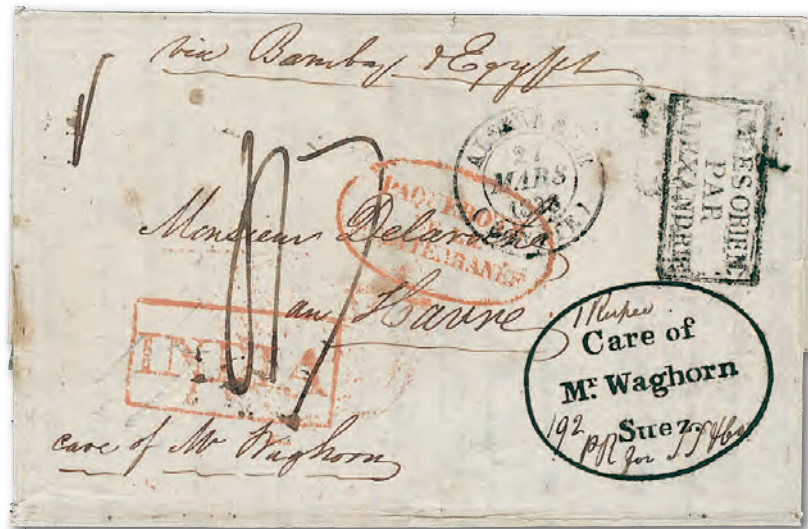 via Bombay & Egypt
ALEXANDRIE
27
MARS
INDES ORIENT.
PAR
ALEXANDRIE
PAQUEBOTS
DE LA
MEDITERRANÉE
Monsieur Delaroche
au Havre
INDIA
1 Rupee
Care of
Mr. Waghorn
Suez.
192
PR for
care of Mr Waghorn